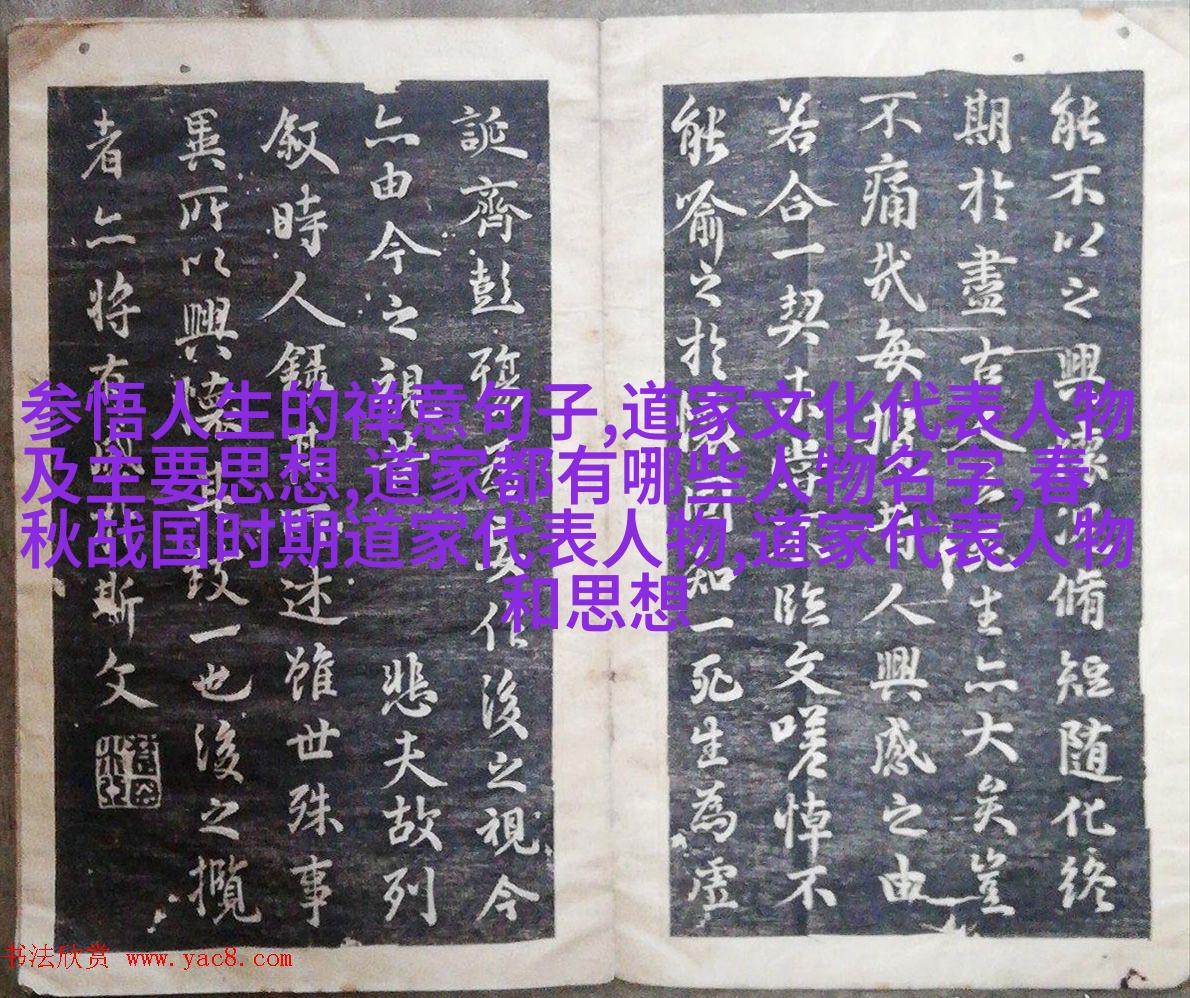 能不以之興懷況脩短随化終
期於盡古人云死生亦大矣豈
不痛哉每攬昔人興感之由
若合一契未嘗不臨文嗟悼不
能喻之於懷固知一死生為虛
誕齊彭殤為妄作後之視今
亦由今之視昔悲夫故列
叙時人録其所述雖世殊事
異所以興懷其致一也後之攬
者亦将有感於斯文
参悟人生的禅意句子,道家文化代表人物
及主要思想,道家都有哪些人物名字,春
秋战国时期道家代表人物,道家代表人物
和思想
书法欣赏 www.yac8.com